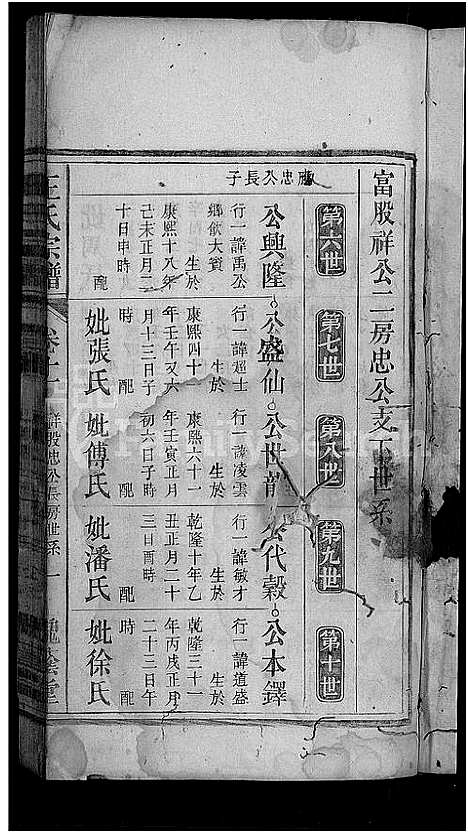 富股祥公二房忠公支下世系
第六世
第七世
第八世
第九世
第十世
忠公長子
公興隆
行一諱禹公
鄉飲大賓
生於
康熙十八年
己未正月二
十日申時
配
妣張氏
公盛仙
行一諱超士
生於
康熙四十一
年壬午又六
月十三日子
時
配
妣傅氏
公世龍
行一諱凌雲
生於
康熙六十一
年壬寅正月
初六日子時
配
妣潘氏
公代穀
行一諱敏才
生於
乾隆十年乙
丑正月二十
三日酉時
配
妣徐氏
公本鐸
行一諱道盛
生於
乾隆三十一
年丙戌正月
二十三日午
時
配
王氏宗譜
卷十一
祥股忠公長房世系
一
槐蔭堂